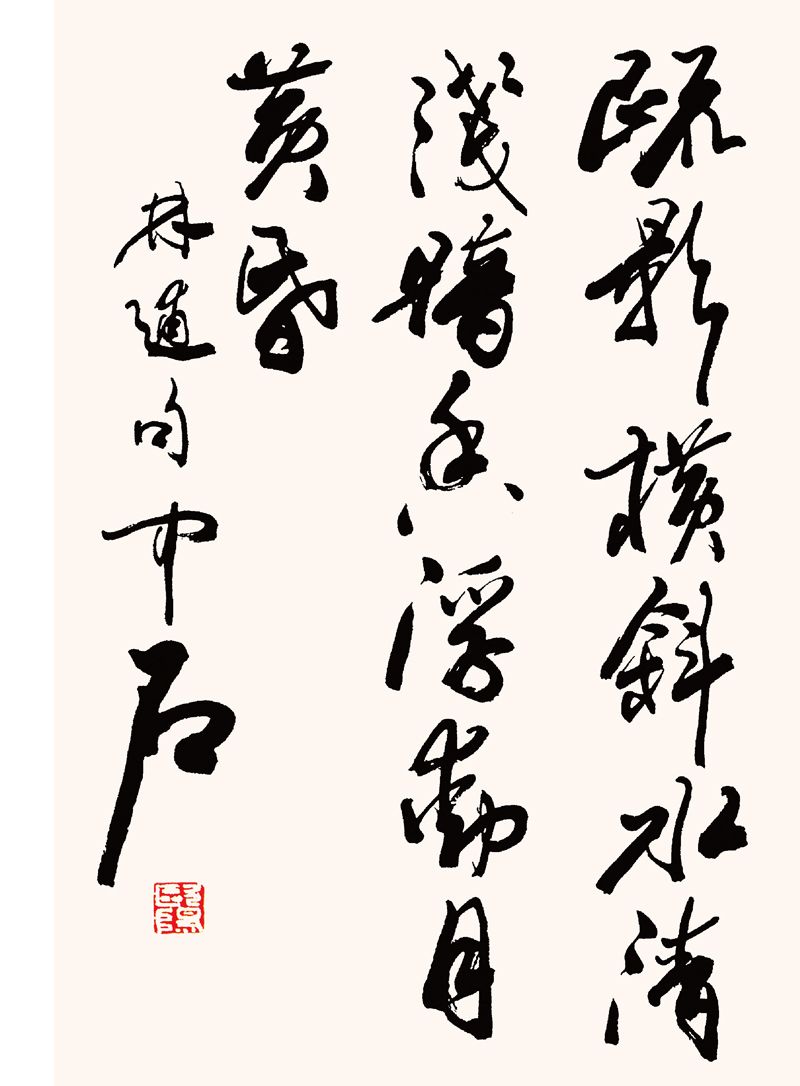 疏影橫斜水清
淺暗香浮動月
黄昏
林逋句中石